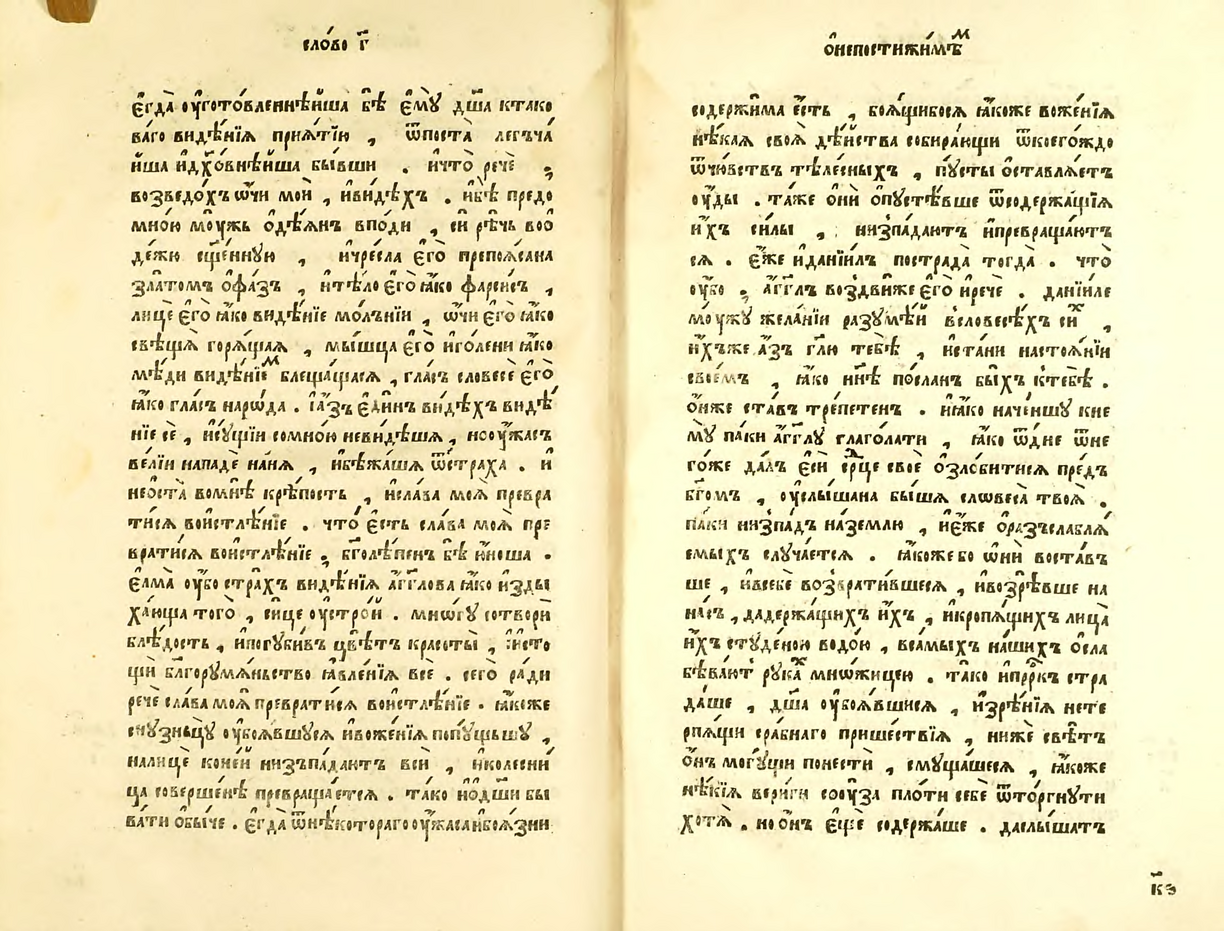 сло́во г҃
є҆гда̀ оу҆гото́вленнѣйша бѣ̀ є҆мꙋ̀ дш҃а ктако
ва́го видѣ́нїѧ прїѧ́тїю , ѿпоста̀ легъча́
йша и҆дх҃о́внѣйша бы́вши . и҆что̀ речѐ ,
возведо́хъ ѡ҆́чи мои̑ , и҆ви́дѣхъ . и҆бѣ̀ предо
мно́ю моу́жь ѻ҆дѣ́ѧнъ впо́ди , си́ рѣчь воѻ
де́жю сщ҃е́ннꙋю , и҆чре́сла є҆го̀ препоѧ́сана
зла́томъ ѻ҆фа́зъ , и҆тѣ́ло є҆го̀ ꙗ҆́ко фарси́съ ,
лицѐ є҆го̀ ꙗ҆́ко видѣ́нїе мо́лънїи , ѡ҆́чи є҆го̀ ꙗ҆́ко
свѣщѧ̀ горѧ́щаѧ , мы́шца є҆го̀ и҆го́лени ꙗ҆́ко
мѣ́ди видѣ́нїеⷨ блеща́щасѧ , гла́съ словесѐ є҆го̀
ꙗ҆́ко гла́съ наро́да . і҆а҆́зъ є҆ди́нъ ви́дѣхъ видѣ́
нїе сѐ , и҆су́щїи сомно́ю неви́дѣша , ноѻу́жасъ
ве́лїи нападѐ на́нѧ , и҆бѣжа́шѧ ѿстра́ха . и҆
неѻста̀ вомнѣ̀ крѣ́пость , и҆сла́ва моѧ̀ превра
ти́сѧ воистлѣ́нїе . что̀ є҆́сть сла́ва моѧ̀ пре
врати́сѧ воистлѣ́нїе , бг҃олѣ́пенъ бѣ̀ ю҆́ноша .
є҆лма̀ оу҆́бо стра́хъ видѣ́нїѧ а҆́гг҃лова ꙗ҆́ко изды
ха́юща того̀ , си́це оу҆стро́и . мно́гꙋ сотворѝ
блѣ́дость , и҆погуби́въ цвѣ́тъ красоты̀ , и҆сто
щѝ бл҃горумѧ́ньство ꙗ҆вле́нїѧ всѐ . сего̀ ра́ди
речѐ сла́ва моѧ̀ преврати́сѧ воистлѣ́нїе . ꙗ҆́коже
сꙋзни́цꙋ оу҆боѧ́вшусѧ и҆воже́нїѧ попꙋ́щьшꙋ ,
налицѐ ко́ней низъпа́даютъ всѝ , и҆колесни́
ца соверше́нѣ превраща́етсѧ . та́ко и҆ѻдшѝ бы
ва́ти ѻ҆бы́че . є҆гда̀ ѿнѣ́котораго оу҆́жаса и҆боѧ́зни
ѻ҆непостижи́мѣⷨ
содержи́ма є҆́сть , боѧ́щибосѧ ꙗ҆́коже воже́нїѧ
нѣ́каѧ своѧ̀ дѣ́йства собира́ющи ѿкоего́ждо
ѿчю́вствъ тѣле́сныхъ , пу́сты ѻ҆ставлѧ́етъ
оу҆́ды . та́же ѻ҆нѝ ѻ҆пустѣ́вше ѿсодержа́щїѧ
и҆́хъ си́лы , низпа́даютъ и҆превраща́ют
сѧ . є҆́же и҆дании́лъ пострада̀ тогда̀ . что̀
оу҆́бо , а҆́гг҃лъ воздви́же є҆го̀ и҆речѐ . дании́ле
моу́жꙋ жела́нїи разꙋмѣ́й всловесѣ́хъ сиⷯ ,
и҆́хъже а҆́зъ гл҃ю тебѣ̀ , и҆ста́ни настоѧ́нїи
свое́мъ , ꙗ҆́ко нн҃ѣ по́сланъ бы́хъ ктебѣ̀ .
ѻ҆́нже ста́въ трепе́тенъ . и҆ꙗ҆́ко наче́ншꙋ кне
мꙋ̀ па́ки а҆́гг҃лу глаго́лати , ꙗ҆́ко ѿдне ѿне
го́же да́лъ є҆сѝ ср҃це своѐ ѻ҆зло́битисѧ пре́дъ
бг҃омъ , оу҆слы́шана бы́шѧ словеса̀ твоѧ̀ ,
па́ки низпа́дъ на́землю , и҆є҆́же ѻ҆разъслаблѧ́
емыхъ случа́етсѧ . ꙗ҆́коже бо ѡ҆нѝ воста́въ
ше , и҆всебѐ возврати́вшесѧ , и҆возрѣ́вше на
на́съ , дадержа́щихъ и҆́хъ , и҆кропѧ́щихъ лица̀
и҆́хъ студе́ною водо́ю , всамы́хъ на́шихъ ѻ҆сла
бѣва́ютъ рука́ⷯ мно́жицею . та́ко и҆пр҃ркъ стра
да́ше , дш҃а оу҆боѧ́вшисѧ , и҆зрѣ́нїѧ нете
рпѧ́щи сра́бнаго прише́ствїѧ , нижѐ свѣ́тъ
ѻ҆́нъ могу́щи понестѝ , смуща́шесѧ , ꙗ҆́коже
нѣ́кїѧ вери́ги соѻу́за пло́ти себѐ ѿто́ргнути
хотѧ̀ . но ѻ҆́нъ є҆щѐ содержа́ше . даслы́шатъ
к҃э